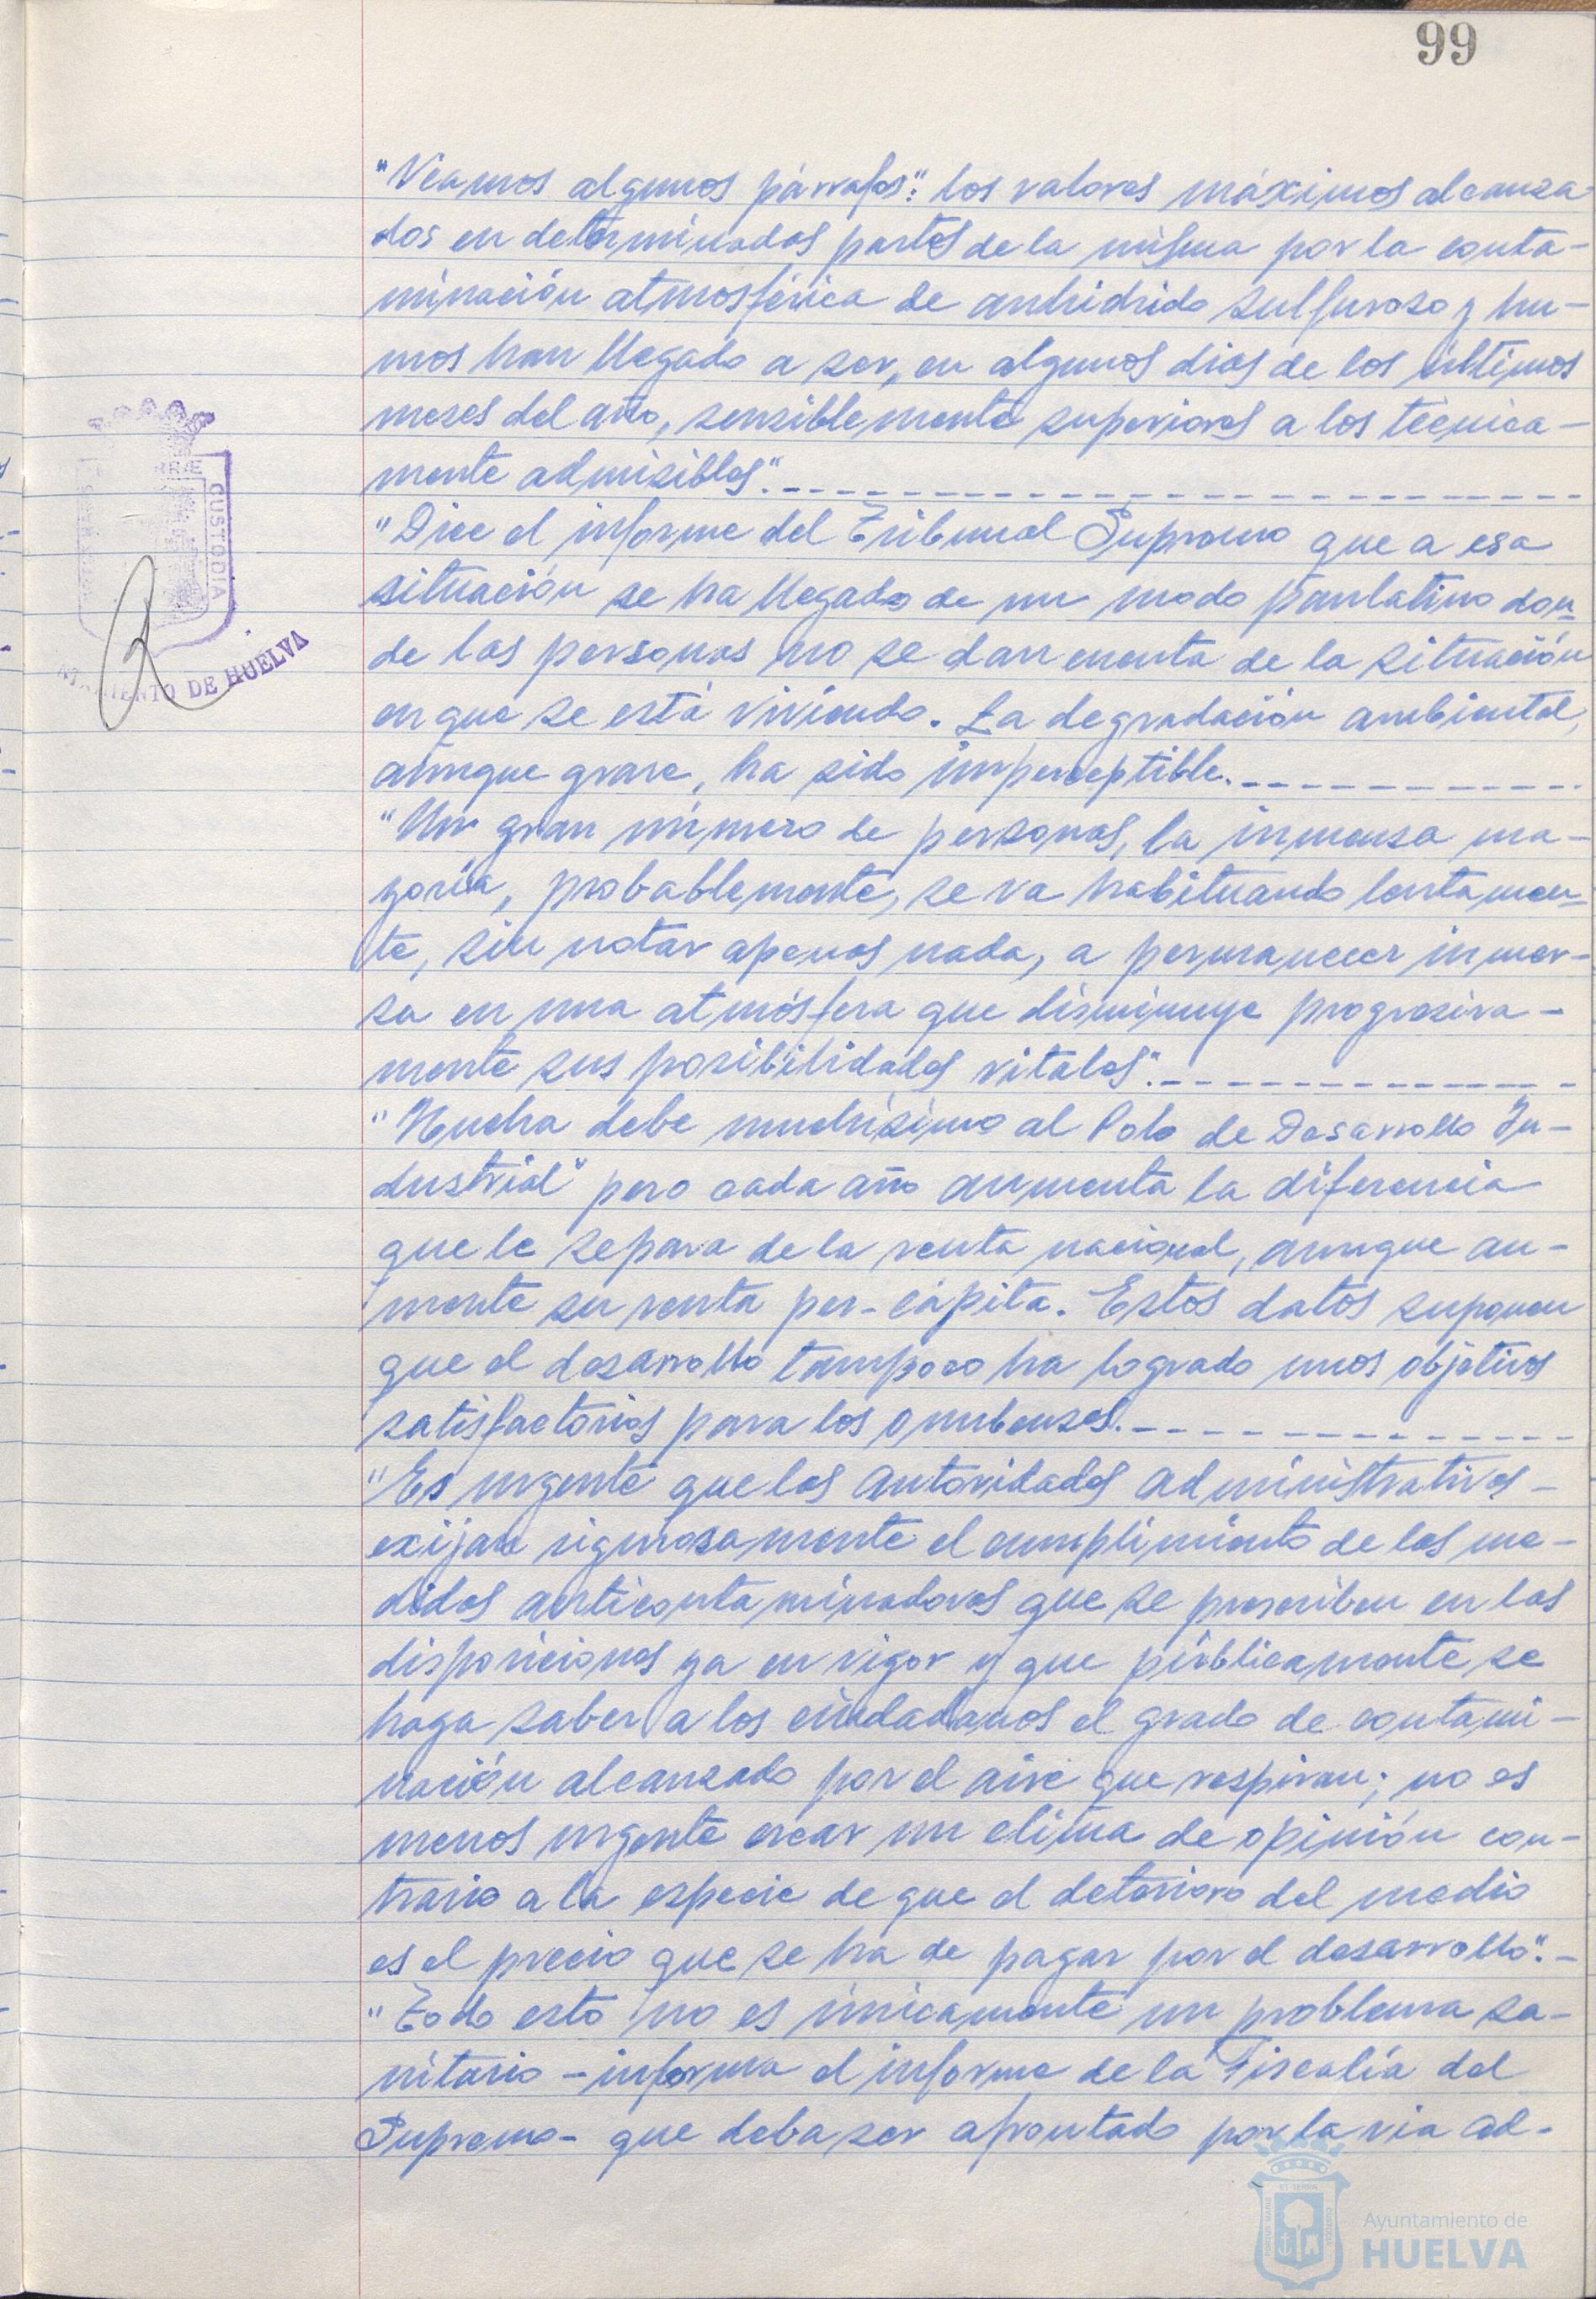 99
"Veamos algunos párrafos": los valores máximos alcanza-
dos en determinadas partes de la misma por la conta-
minación atmosférica de anhidrido sulfuroso y hu-
mos han llegado a ser, en algunos dias de los últimos
meses del año, sensiblemente superiores a los técnica-
mente admisibles".
"Dice el informe del Tribunal Supremo que a esa
situación se ha llegado de un modo paulatino don-
de las personas no se dan cuenta de la situación
en que se está viviendo. La degradación ambiental,
aunque grave, ha sido imperceptible.
"Un gran número de personas, la inmensa ma-
yoría, probablemente, se va habituando lentamen-
te, sin notar apenas nada, a permanecer inmer-
sa en una atmósfera que disminuye progresiva-
mente sus posibilidades vitales".
"Huelva debe muchísimo al Polo de Desarrollo In-
dustrial" pero cada año aumenta la diferencia
que le separa de la renta nacional, aunque au-
mente su renta per-cápita. Estos datos suponen
que el desarrollo tampoco ha logrado unos objetivos
satisfactorios para los onubenses.
"Es urgente que las autoridades administrativas
exijan rigurosamente el cumplimiento de las me-
didas anticontaminadoras que se prescriben en las
disposiciones ya en vigor y que públicamente se
haga saber a los ciudadanos el grado de contami-
nación alcanzado por el aire que respiran; no es
menos urgente crear un clima de opinión con-
trario a la especie de que el deterioro del medio
es el precio que se ha de pagar por el desarrollo".-
"Todo esto no es únicamente un problema sa-
nitario -informa el informe de la Fiscalía del
Supremo- que deba ser afrontado por la via ad-
CUSTODIA
DE HUELVA
Ayuntamiento de
HUELVA